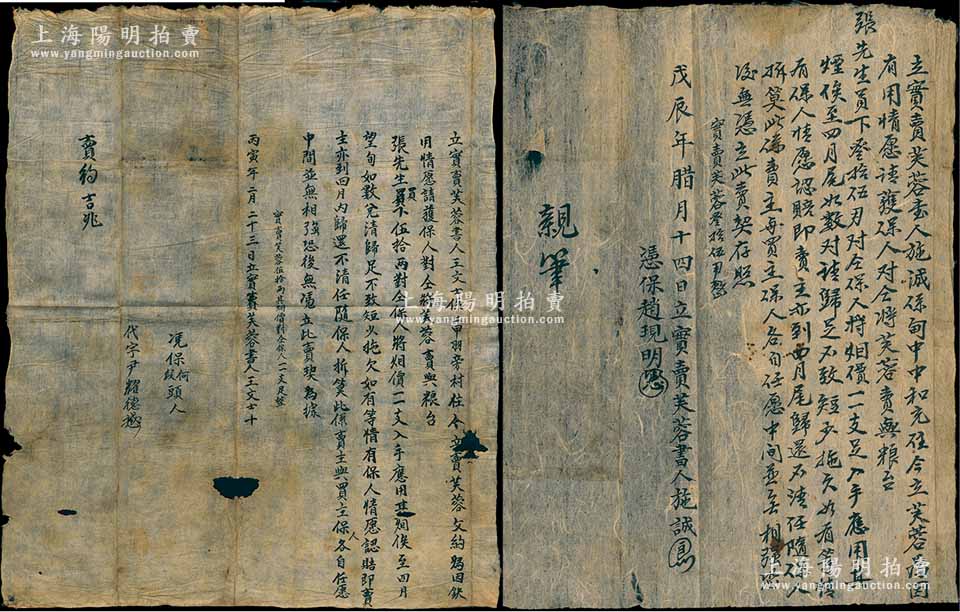 上海陽明拍賣
www.yangmingauction.com
立實賣芙蓉書人王文士係甲羽旁村住今立賣芙蓉文約爲因缺
用情應請獲保人對仝將芙蓉賣與糧台
張先生員下伍拾兩對仝保人將烟價一一支入手應用其烟俟至四月
望旬如數兌清歸足不致短少拖欠如有等情有保人情愿認賠即賣
主亦到四月内歸還不清任隨保人折算此係賣主與買主保人各自任愿
中間並無相強恐後無憑立此賣契爲據
實賣芙蓉伍拾兩其價對仝保人一一支足整
丙寅年二月二十三日立實賣芙蓉書人王文士十
憑保何頭人
代字尹耀德
賣約吉兆
上海陽明拍賣
www.yangmingauction.com
立實賣芙蓉書人施誠係甸中中和充住今立芙蓉爲因
有用情愿請護保人对仝將芙蓉賣與粮台
張先生員下叁拾伍刄对仝保人將烟價一一支足入手應用其
煙俟至四月尾如数对請歸足不致短少拖欠如有等情
有保人情愿認賠即賣主亦到四月尾歸還不清任隨保人
拆算此係賣主與買主保人各自任愿中间並無相強恐
後無憑立此賣契存照
實賣芙蓉叁拾伍刄整
戊辰年腊月十四日立實賣芙蓉書人施誠
憑保趙現明
親筆
上海陽明拍賣
www.yangmingauction.com
上海陽明拍賣
www.yangmingauction.com